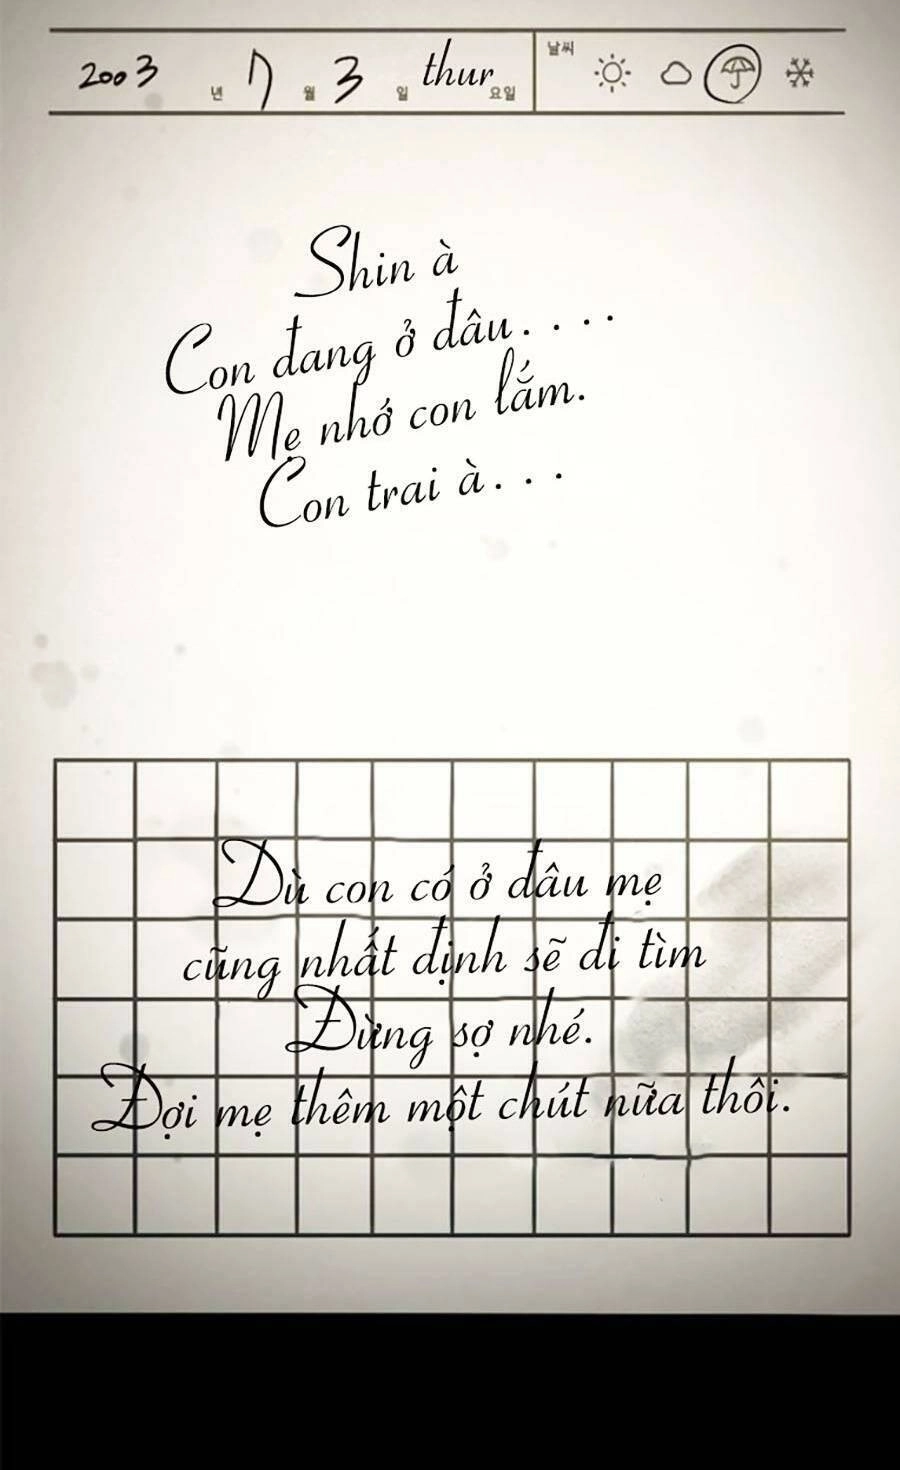 2003 년 7 월 3 일 thur 요일 날씨
Shin à
Con đang ở đâu....
Mẹ nhớ con lắm.
Con trai à...
Dù con có ở đâu mẹ
cũng nhất định sẽ đi tìm
Đừng sợ nhé.
Đợi mẹ thêm một chút nữa thôi.